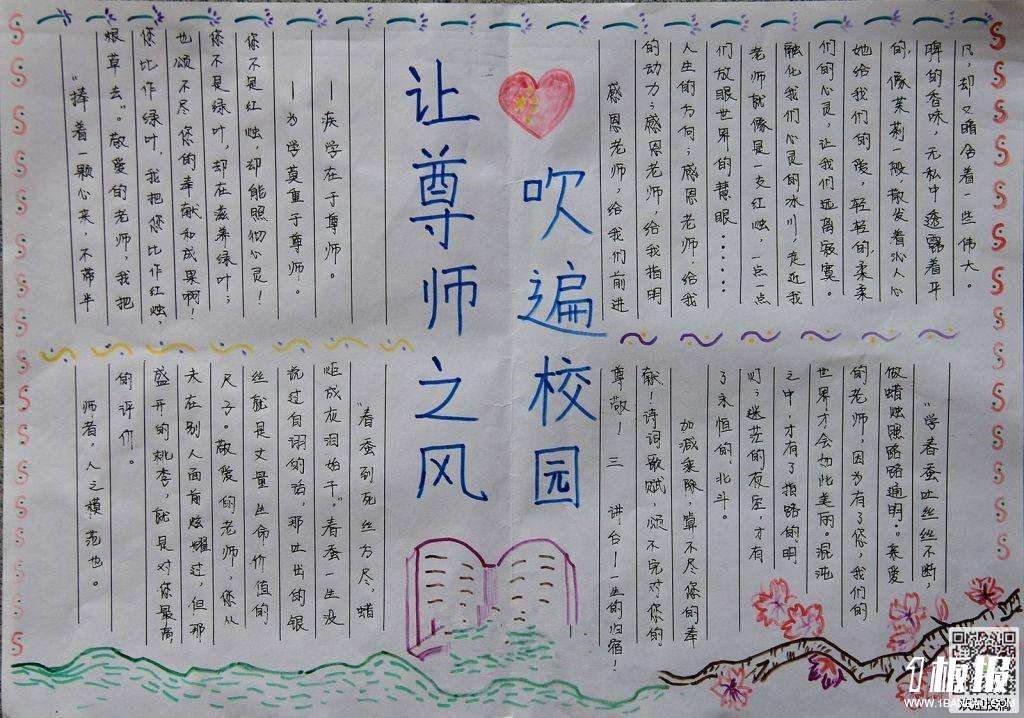 让尊师之风
吹遍校园
"捧着一颗心来,不带半
根草去。"敬爱的老师,我把
您比作绿叶,我把您比作红烛,
也颂不尽您的奉献和成果啊!
您不是绿叶,却在滋养绿叶;
您不是红烛,却能照彻心灵!
——为学莫重于尊师。
——疾学在于尊师。
感恩老师,给我们前进
的动力;感恩老师,给我指明
人生的方向;感恩老师,给我
们放眼世界的慧眼......
老师就像是一支红烛,一点一点
融化我们心灵的冰川,走近我
们的心灵,让我们远离寂寞。
她给我们的爱,轻轻的,柔柔
的,像茉莉一般散发着沁人心
脾的香味,无私中透露着平
凡,却又暗含着一些伟大。
"春蚕到死丝方尽,蜡
炬成灰泪始干。"春蚕一生没
说过自诩的话,那吐出的银
丝就是丈量生命价值的
尺子。敬爱的老师,您从
未在别人面前炫耀过,但那
盛开的桃李,就是对您最高
的评价。
师者,人之模范也。
"学春蚕吐丝丝丝不断,
做蜡烛照路路路通明。"亲爱
的老师,因为有了您,我们的
世界才会如此美丽。混沌
之中,才有了指路的明
灯;迷茫的夜空,才有
了永恒的北斗。
加减乘除,算不尽您的奉
献!诗词歌赋,颂不完对你的
尊敬! 三 讲台!一生的归宿!
1板报
WWW.1BANBAO.COM
欢迎投稿